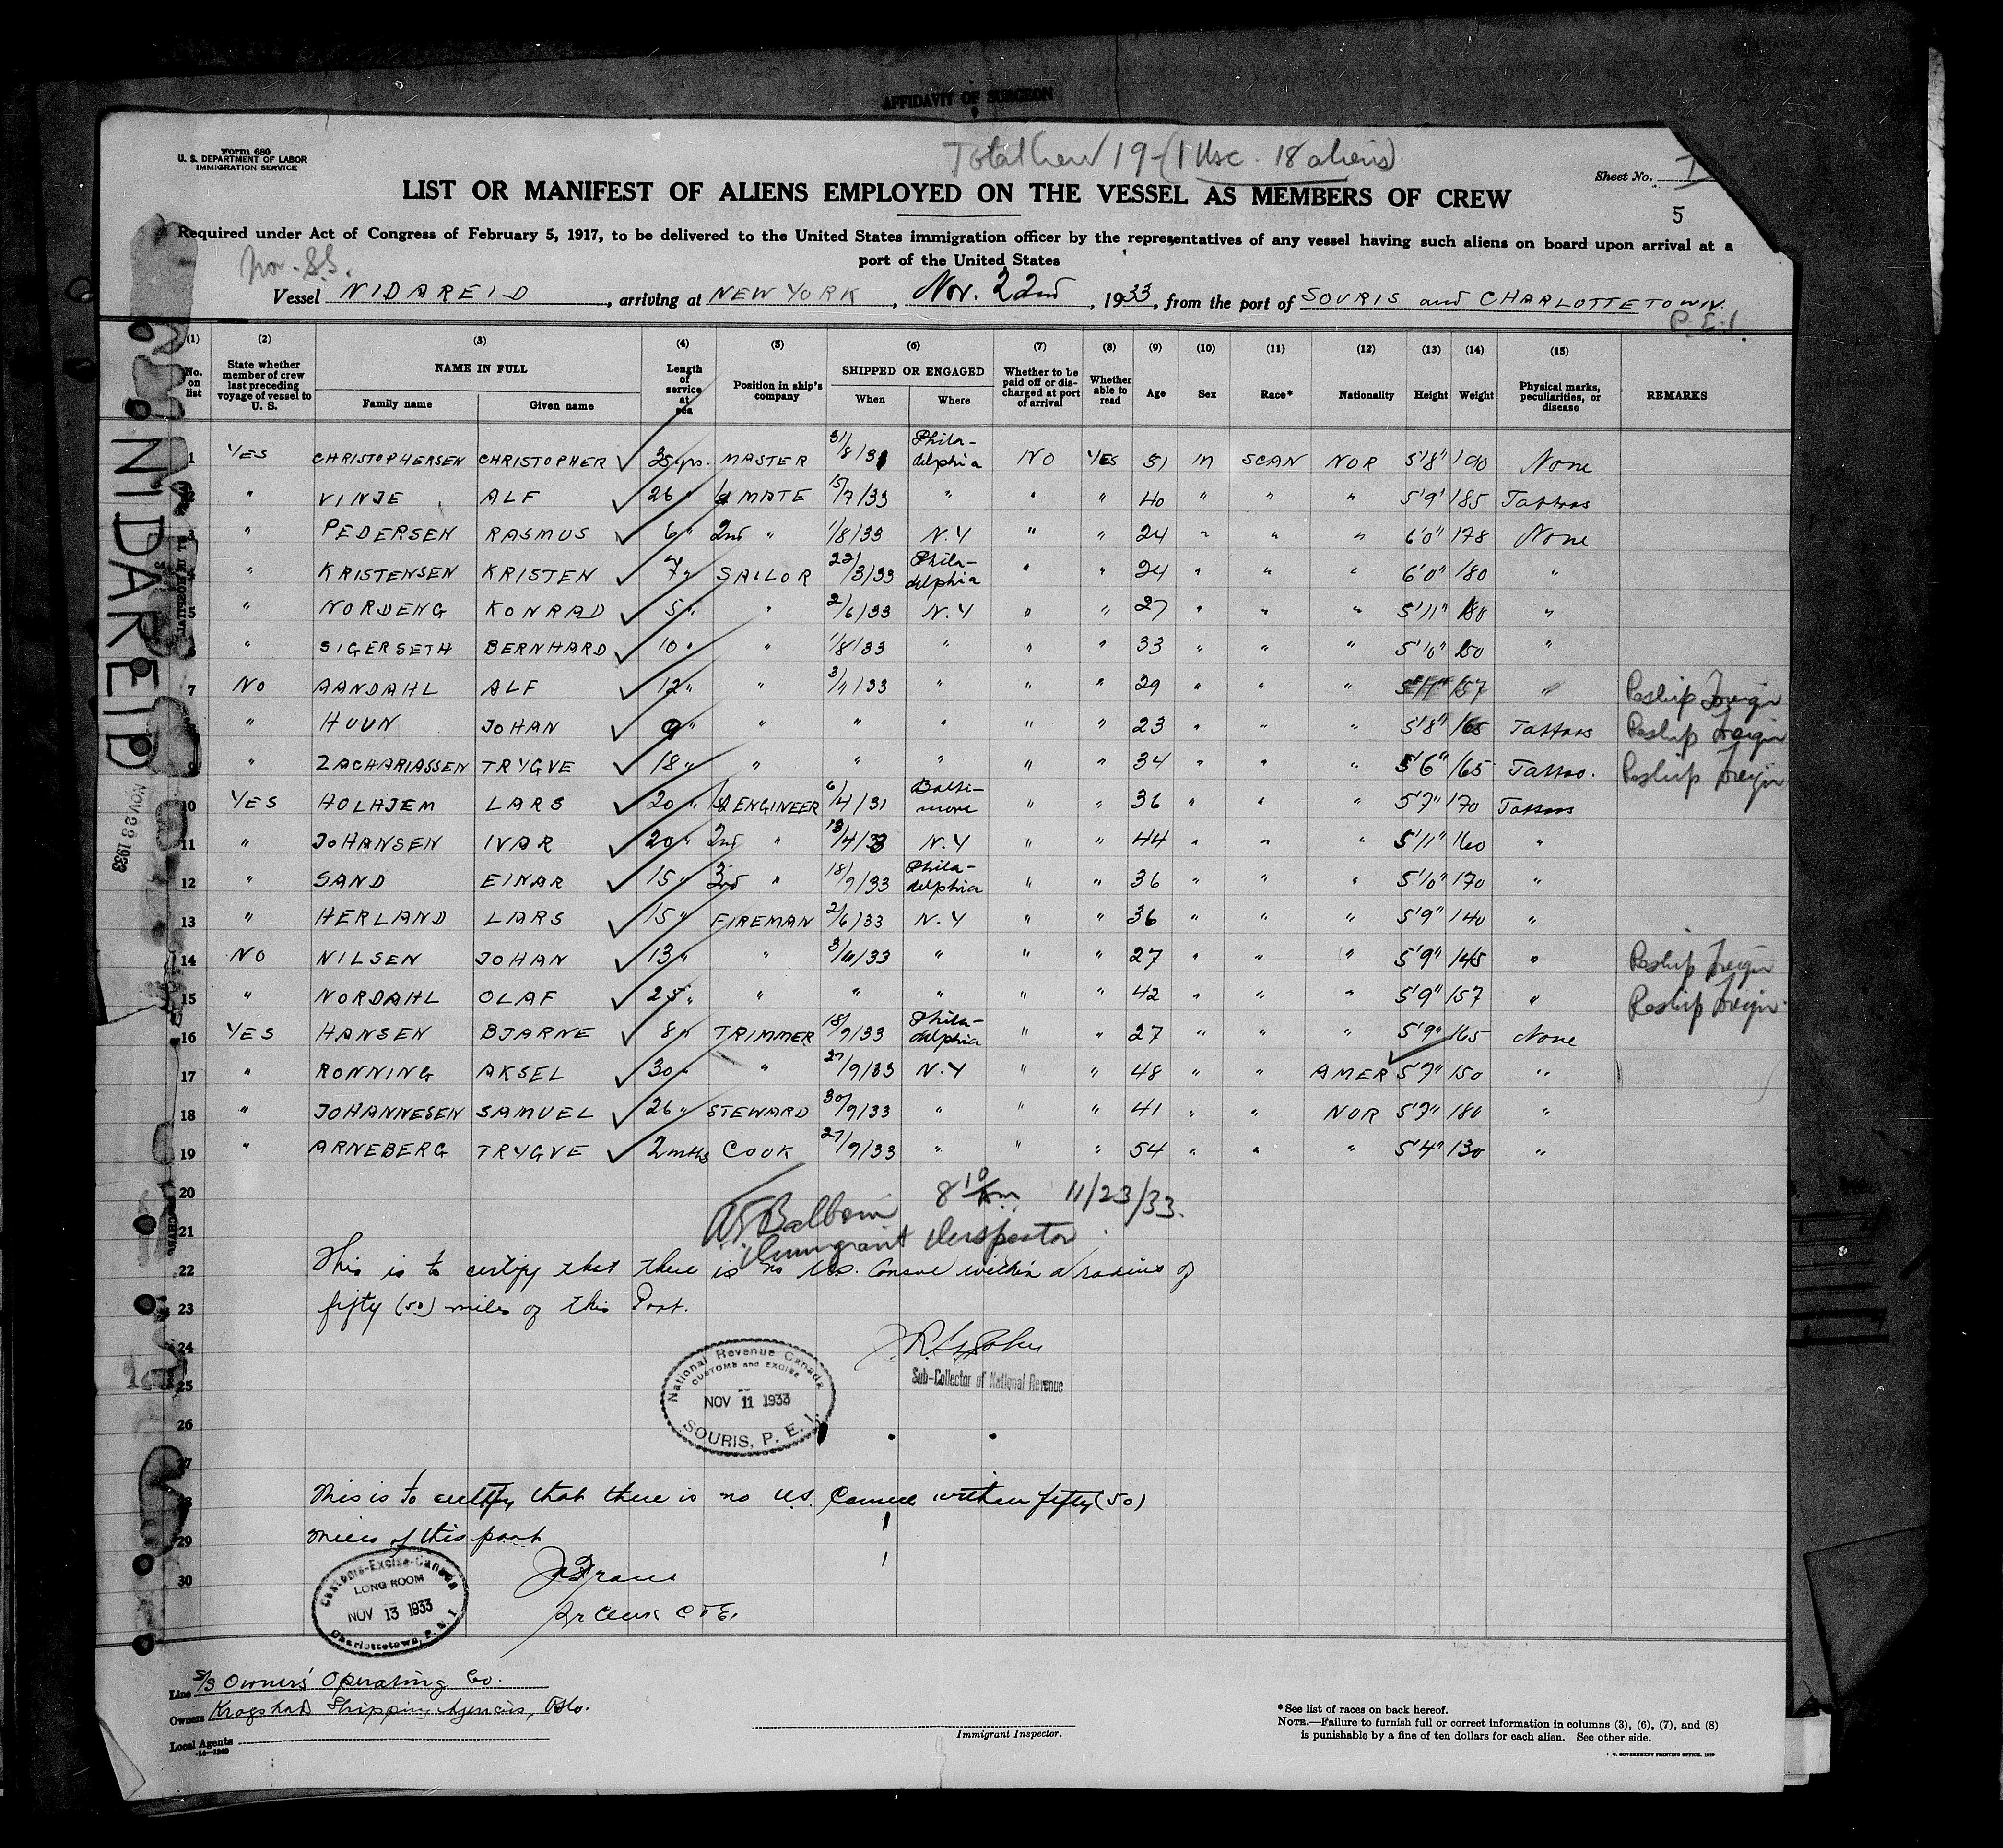 AFFIDAVIT OF SURGEON
Form 680
U. S. DEPARTMENT OF LABOR
IMMIGRATION SERVICE
Total Crew 19-(1 Usc. 18 aliens)
Sheet No. 1
LIST OR MANIFEST OF ALIENS EMPLOYED ON THE VESSEL AS MEMBERS OF CREW
5
Required under Act of Congress of February 5, 1917, to be delivered to the United States immigration officer by the representatives of any vessel having such aliens on board upon arrival at a
port of the United States
Nor. S.S.
Vessel NIDAREID, arriving at NEW YORK, Nov. 22nd, 1933, from the port of SOURIS and CHARLOTTETOWN.
P.E.I.
(1) (2) (3) (4) (5) (6) (7) (8) (9) (10) (11) (12) (13) (14) (15)
No. on list State whether member of crew last preceding voyage of vessel to U. S. NAME IN FULL Family name Given name Length of service at sea Position in ship's company SHIPPED OR ENGAGED When Where Whether to be paid off or discharged at port of arrival Whether able to read Age Sex Race* Nationality Height Weight Physical marks, peculiarities, or disease REMARKS
1 YES CHRISTOPHERSEN CHRISTOPHER 35 yrs. MASTER 31/8/31 Phila-delphia NO YES 51 M SCAN NOR 5'8" 190 None
2 " VINJE ALF 26 " MATE 15/7/33 " " " 40 " " " 5'9" 185 Tattoos
3 " PEDERSEN RASMUS 6 " 2nd " 1/8/33 N.Y " " 24 " " " 6'0" 178 None
4 " KRISTENSEN KRISTEN 7 " SAILOR 22/3/33 Phila-delphia " " 24 " " " 6'0" 180 "
5 " NORDENG KONRAD 5 " " 2/6/33 N.Y " " 27 " " " 5'11" 180 "
6 " SIGERSETH BERNHARD 10 " " 1/8/33 " " " 33 " " " 5'10" 150 "
7 NO AANDAHL ALF 12 " " 3/11/33 " " " 29 " " " 5'11" 157 " Reship Foreign
8 " HUUN JOHAN 9 " " " " " " 23 " " " 5'8" 165 Tattoos Reship Foreign
9 " ZACHARIASSEN TRYGVE 18 " " " " " " 34 " " " 5'6" 165 Tattoo. Reship Foreign
10 YES HOLHJEM LARS 20 " ENGINEER 6/4/31 Balti-more " " 36 " " " 5'7" 170 Tattoos
11 " JOHANSEN IVAR 20 " 2nd " 13/4/33 N.Y " " 44 " " " 5'11" 160 "
12 " SAND EINAR 15 " 3rd " 18/9/33 Phila-delphia " " 36 " " " 5'10" 170 "
13 " HERLAND LARS 15 " FIREMAN 2/6/33 N.Y " " 36 " " " 5'9" 140 "
14 NO NILSEN JOHAN 13 " " 3/11/33 " " " 27 " " " 5'9" 145 " Reship Foreign
15 " NORDAHL OLAF 25 " " " " " " 42 " " " 5'9" 157 " Reship Foreign
16 YES HANSEN BJARNE 8 " TRIMMER 18/9/33 Phila-delphia " " 27 " " " 5'9" 165 None
17 " RONNING AKSEL 30 " " 27/9/33 N.Y " " 48 " " AMER 5'7" 150 "
18 " JOHANNESEN SAMUEL 26 " STEWARD 30/9/33 " " " 41 " " NOR 5'7" 180 "
19 " ARNEBERG TRYGVE 2 mths COOK 27/9/33 " " " 54 " " " 5'4" 130 "
20
8 10 Am 11/23/33.
21
Immigrant Inspector
22 This is to certify that there is no U.S. Consul within a radius of
23 fifty (50) miles of this Port.
24
Sub-Collector of National Revenue
25
National Revenue Canada
CUSTOMS and EXCISE
NOV 11 1933
SOURIS, P. E. I.
26
27
28 This is to certify that there is no U.S. Consul within fifty (50)
29 miles of this port
30
Customs-Excise-Canada
LONG ROOM
NOV 13 1933
Charlottetown, P. E. I.
NIDAREID
NOV 23 1933
Line S/S Owners' Operating Co.
Owners Kragstad Shipping Agencies, Oslo.
Local Agents
14—1240
Immigrant Inspector.
*See list of races on back hereof.
NOTE.—Failure to furnish full or correct information in columns (3), (6), (7), and (8)
is punishable by a fine of ten dollars for each alien. See other side.
GOVERNMENT PRINTING OFFICE